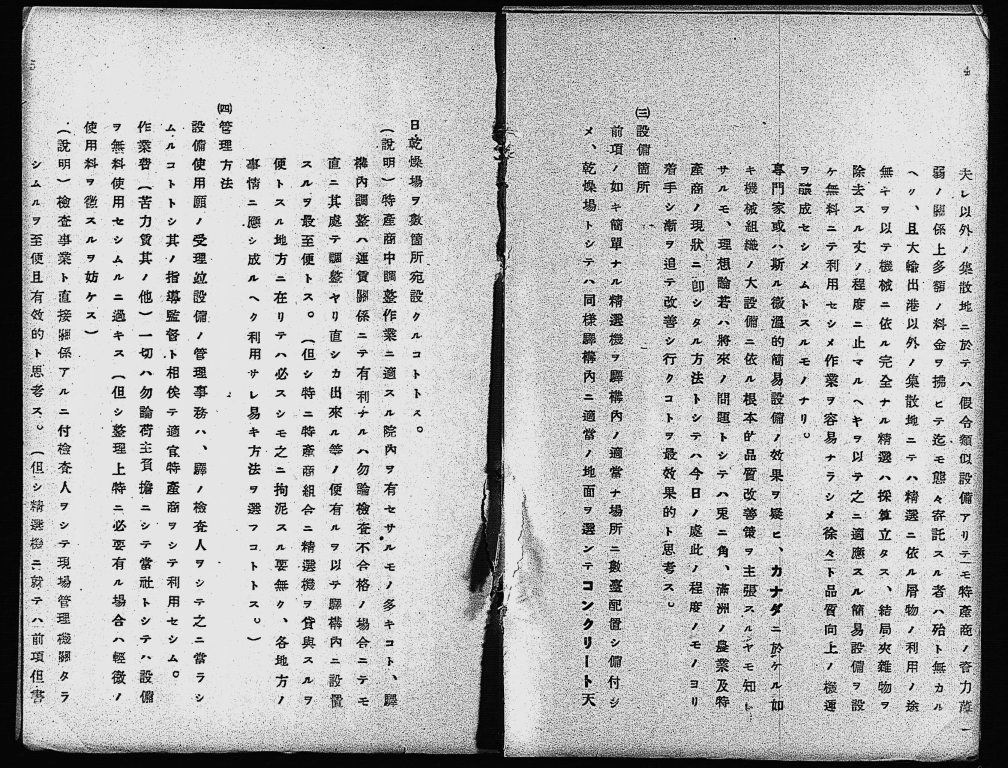 4
夫レ以外ノ集散地ニ於テハ假令類似設備アリテモ特產商ノ資力薄
弱ノ關係上多額ノ料金ヲ拂ヒテ迄モ態々寄託スル者ハ殆ト無カル
ヘク、且大輸出港以外ノ集散地ニテハ精選ニ依ル屑物ノ利用ノ途
無キヲ以テ機械ニ依ル完全ナル精選ハ採算立タス、結局夾雜物ヲ
除去スル丈ノ程度ニ止マルヘキヲ以テ之ニ適應スル簡易設備ヲ設
ケ無料ニテ利用セシメ作業ヲ容易ナラシメ徐々ト品質向上ノ機運
ヲ釀成セシメムトスルモノナリ。
專門家或ハ斯ル微溫的簡易設備ノ效果ヲ疑ヒ、カナダニ於ケル如
キ機械組織ノ大設備ニ依ル根本的品質改善策ヲ主張スルヤモ知レ
サルモ、理想論若ハ將來ノ問題トシテハ兎ニ角、滿洲ノ農業及特
產商ノ現狀ニ卽シタル方法トシテハ今日ノ處此ノ程度ノモノヨリ
着手シ漸ヲ追テ改善シ行クコトヲ最效果的ト思考ス。
㈢設備箇所
前項ノ如キ簡單ナル精選機ヲ驛構內ノ適當ナ場所ニ數臺配置シ備付シ
メ、乾燥場トシテハ同樣驛構內ニ適當ノ地面ヲ選ンテコンクリート天
日乾燥場ヲ數箇所宛設クルコトトス。
(說明)特產商中調整作業ニ適スル院內ヲ有セサルモノ多キコト、驛
構內調整ハ運賃關係ニテ有利ナルハ勿論檢査不合格ノ場合ニテモ
直ニ其處テ調整ヤリ直シカ出來ル等ノ便有ルヲ以テ驛構內ニ設置
スルヲ最至便トス。(但シ特ニ特產商組合ニ精選機ヲ貸與スルヲ
便トスル地方ニ在リテハ必スシモ之ニ拘泥スル要無ク、各地方ノ
事情ニ應シ成ルヘク利用サレ易キ方法ヲ選フコトトス。)
㈣管理方法
設備使用願ノ受理竝設備ノ管理事務ハ、驛ノ檢査人ヲシテ之ニ當ラシ
ムルコトトシ其ノ指導監督ト相俟テ適宜特產商ヲシテ利用セシム。
作業費(苦力賃其ノ他)一切ハ勿論荷主負擔ニシテ當社トシテハ設備
ヲ無料使用セシムルニ過キス(但シ整理上特ニ必要有ル場合ハ輕微ノ
使用料ヲ徵スルヲ妨ケス)
(說明)檢査事業ト直接關係アルニ付檢査人ヲシテ現場管理機關タラ
シムルヲ至便且有效的ト思考ス。(但シ精選機ニ就テハ前項但書
5